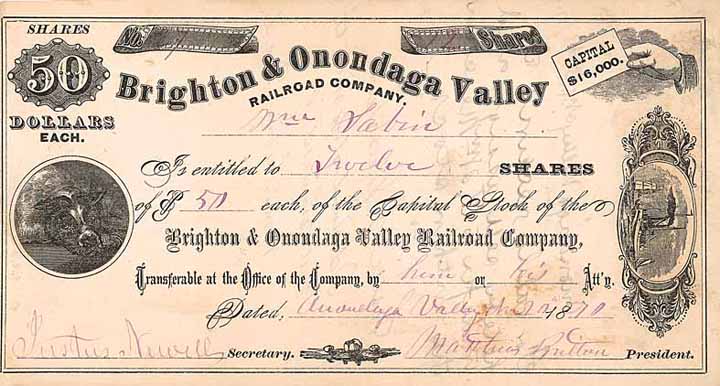 SHARES
50
DOLLARS
EACH.
No.
Shares
CAPITAL
$16,000.
Brighton & Onondaga Valley
RAILROAD COMPANY.
Wm Sabin
Is entitled to Twelve SHARES
of $ 50 each, of the Capital Stock of the
Brighton & Onondaga Valley Railroad Company,
Transferable at the Office of the Company, by him or his Att'y.
Dated, Onondaga Valley 1870
Justus Newell Secretary. Matthias Britton President.